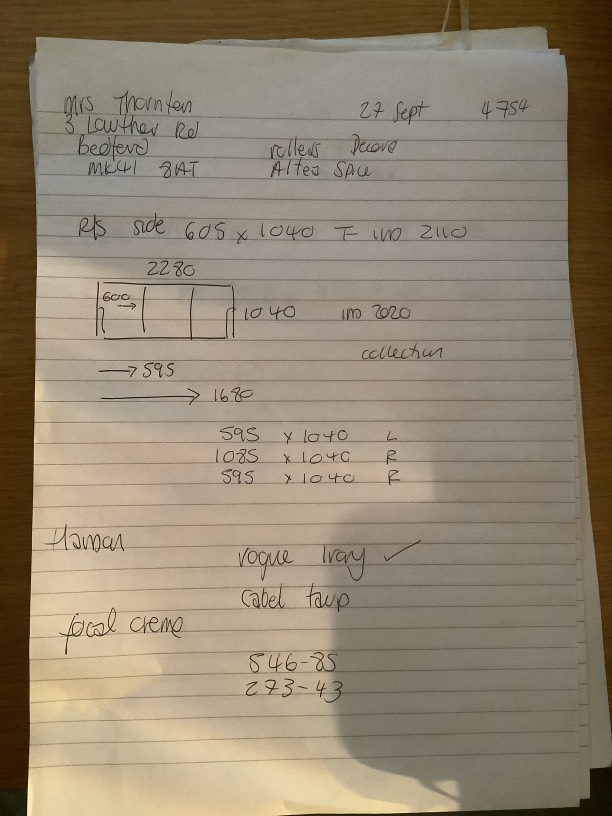 Mrs Thornton 27 Sept 4754
3 Lowther Rd
Bedford rollers Decora
MK41 8AT Altea Space
R/S side 605 x 1040 F 1110 2110
2280
600 → 1040 2020
collection
→ 595
→ 1680
595 x 1040 L
1085 x 1040 R
595 x 1040 R
vogue Ivory ✓
Cabel taup
focal creme
546-85
273-43